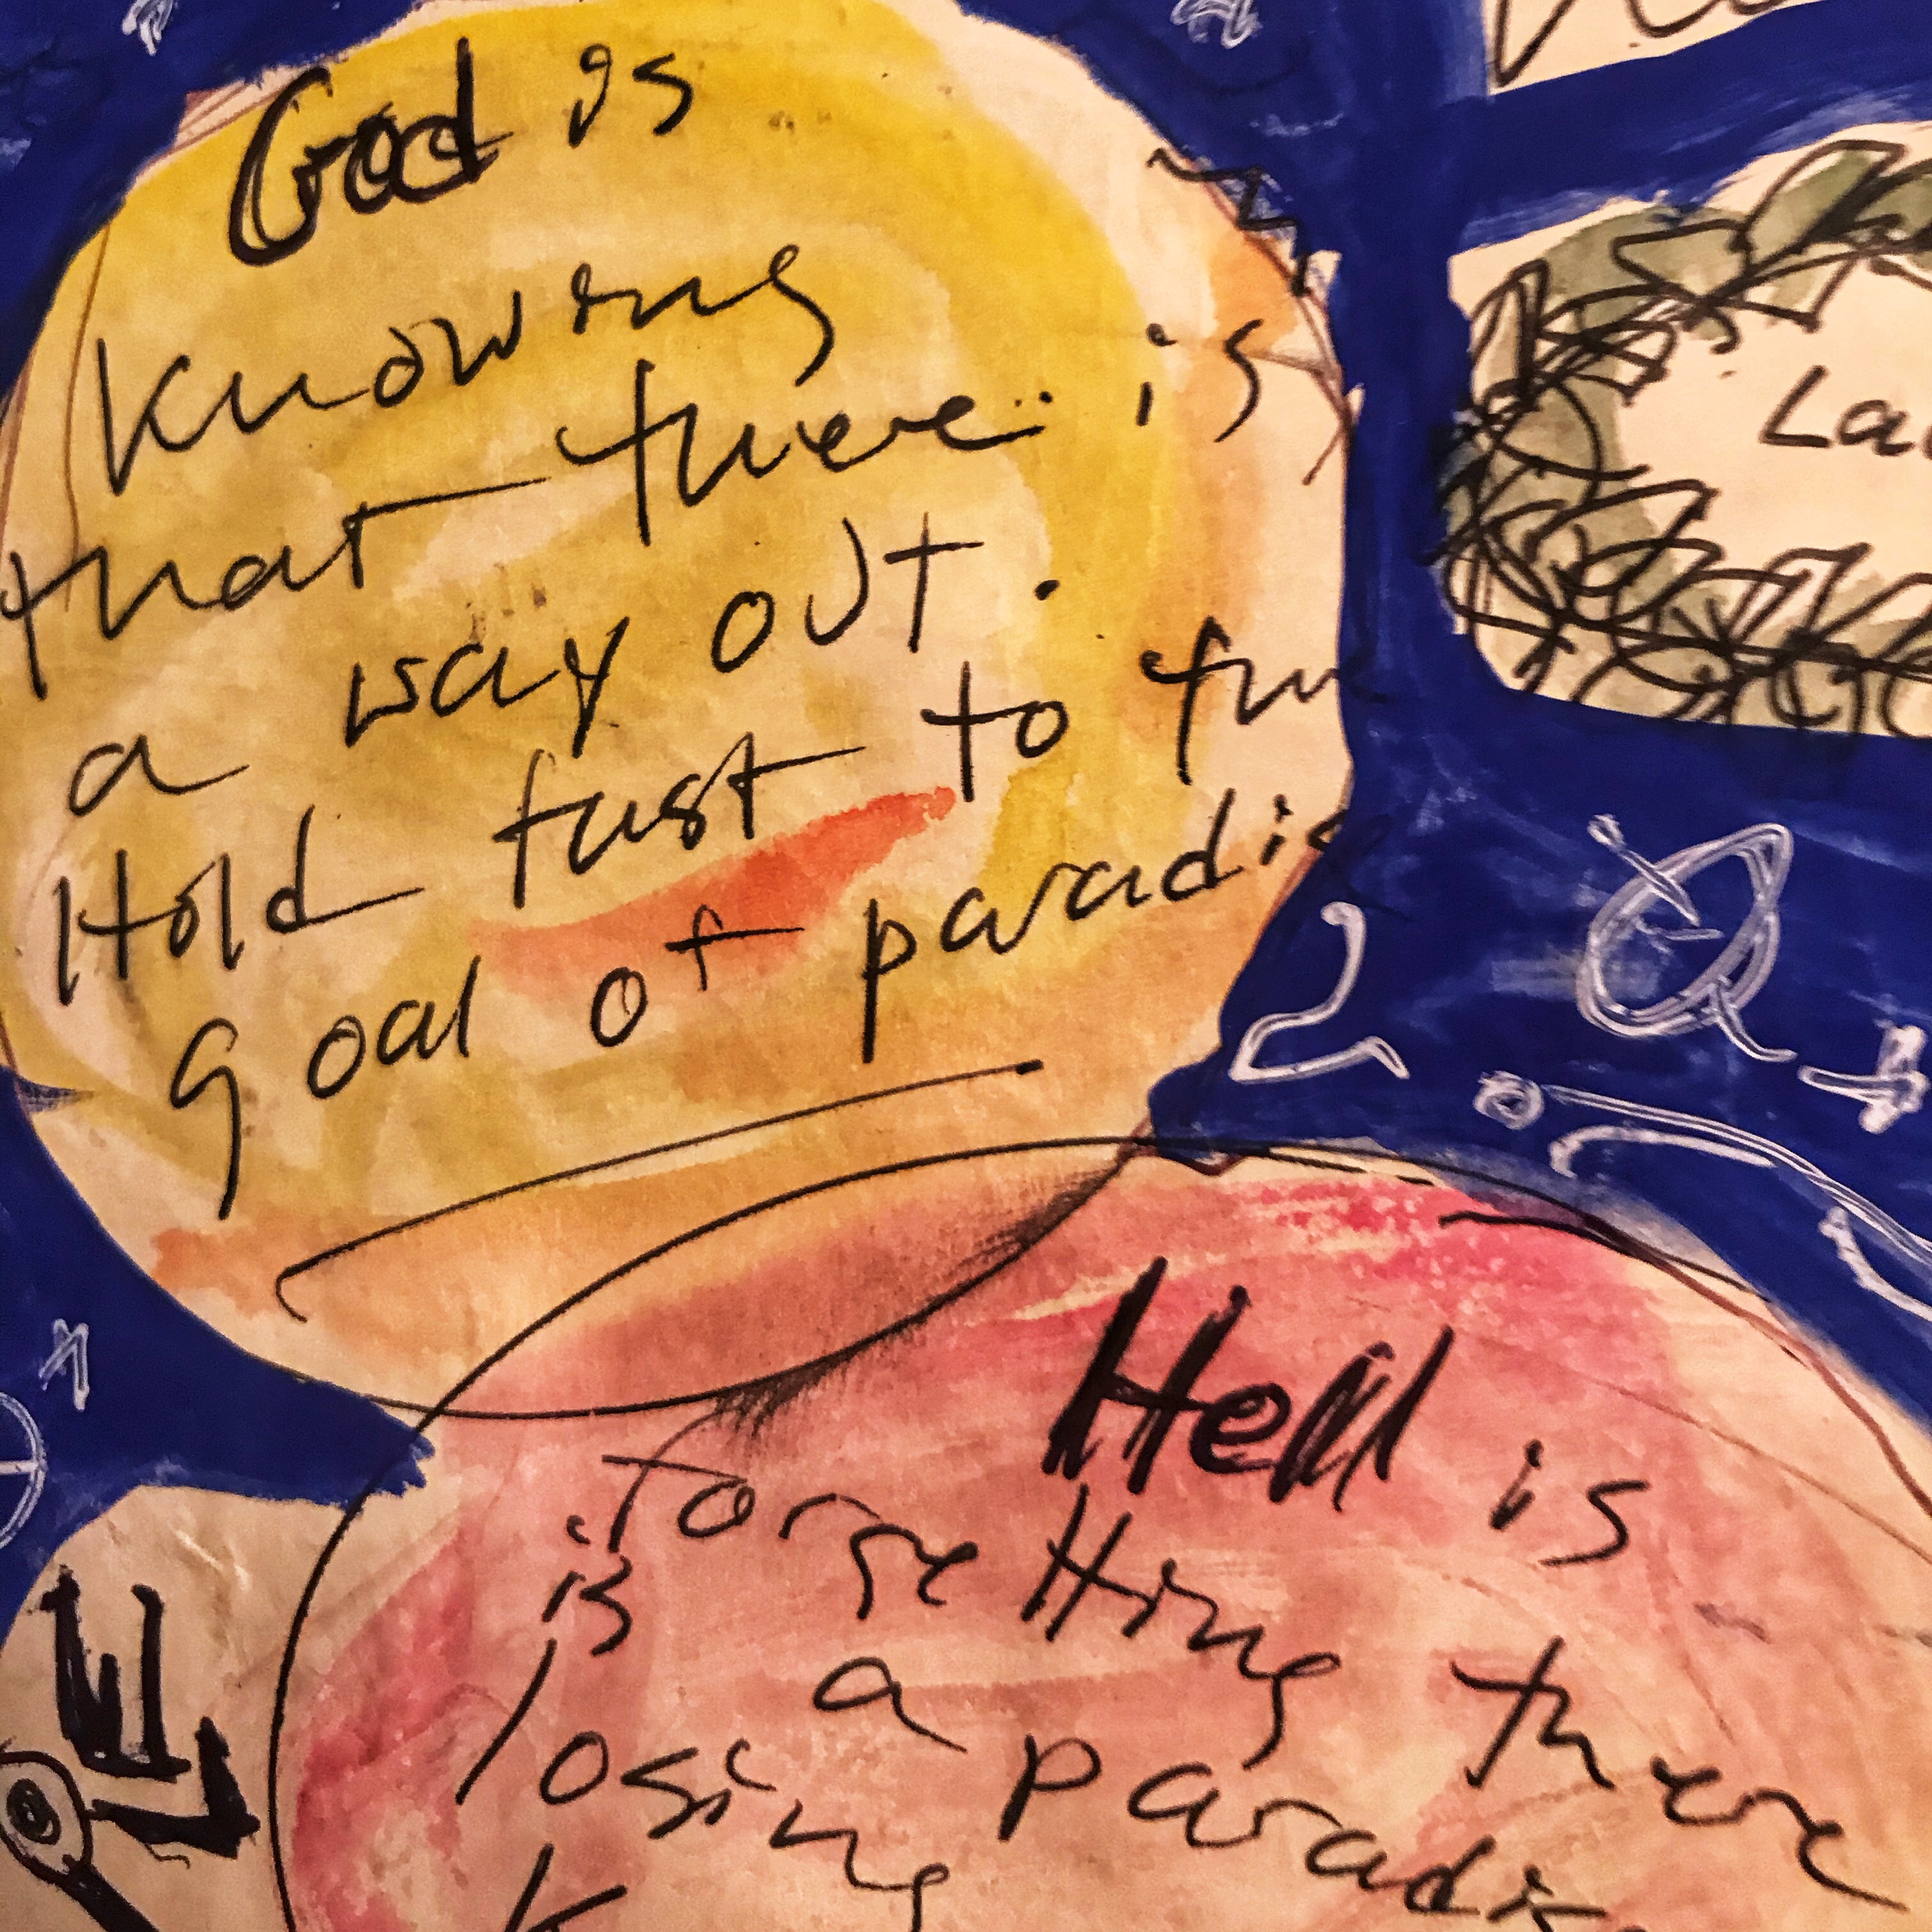 God is
knowing
that there is
a way out.
Hold fast to
goal of paradise
Hell is
forgetting there
is a paradi
losing
La